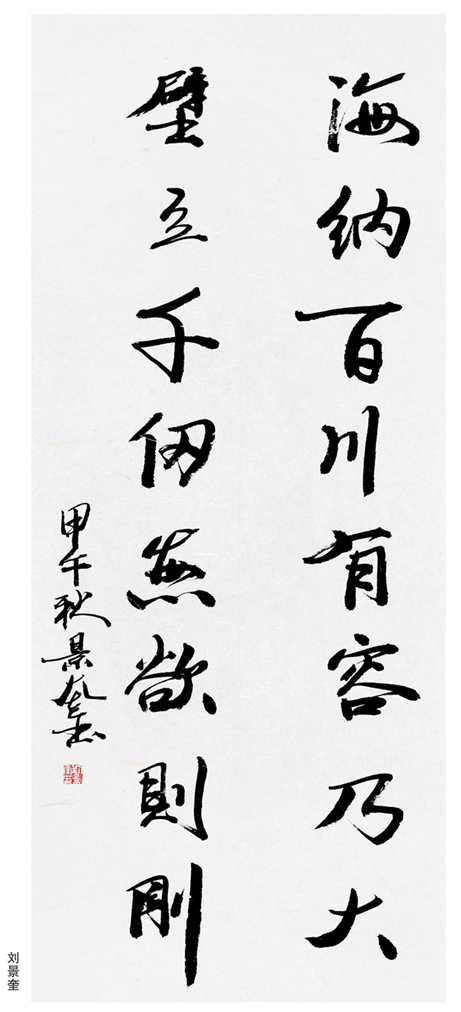 海納百川有容乃大
壁立千仞無欲則剛
甲午秋景奎書
刘景奎